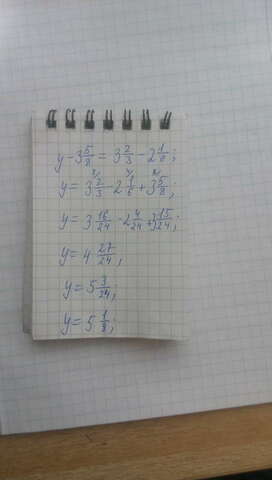 y - 3 5/8 = 3 2/3 - 2 1/6;
y = 3 2/3 - 2 1/6 + 3 5/8;
y = 3 16/24 - 2 4/24 + 3 15/24;
y = 4 27/24;
y = 5 3/24;
y = 5 1/8;